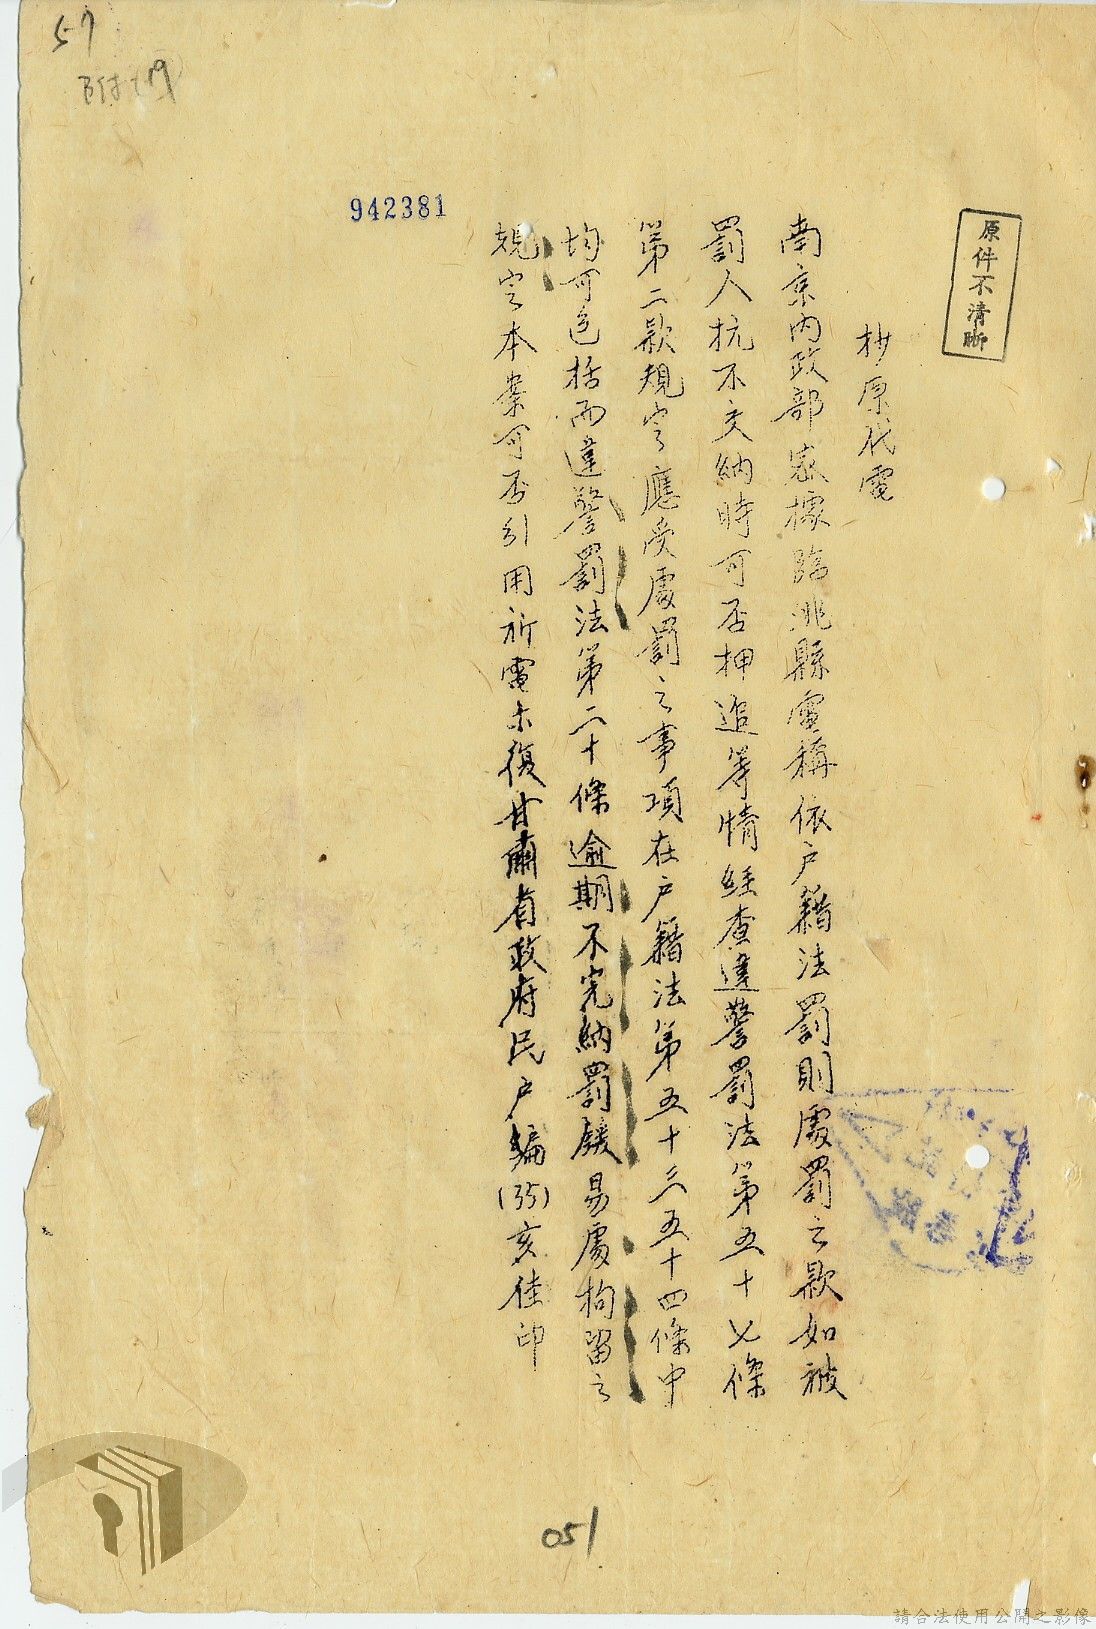 57
附
942381
原件不清晰
抄原代電
南京內政部 據臨洮縣電稱依戶籍法罰則處罰之款如被
罰人抗不交納時可否押追等情經查違警罰法第五十七條
第二款規定應受處罰之事項在戶籍法第五十三五十四條中
均可包括而違警罰法第二十條逾期不完納罰鍰易處拘留之
規定本案可否引用祈電示復甘肅省政府民戶編(35)亥佳印
051
請合法使用公開之影像